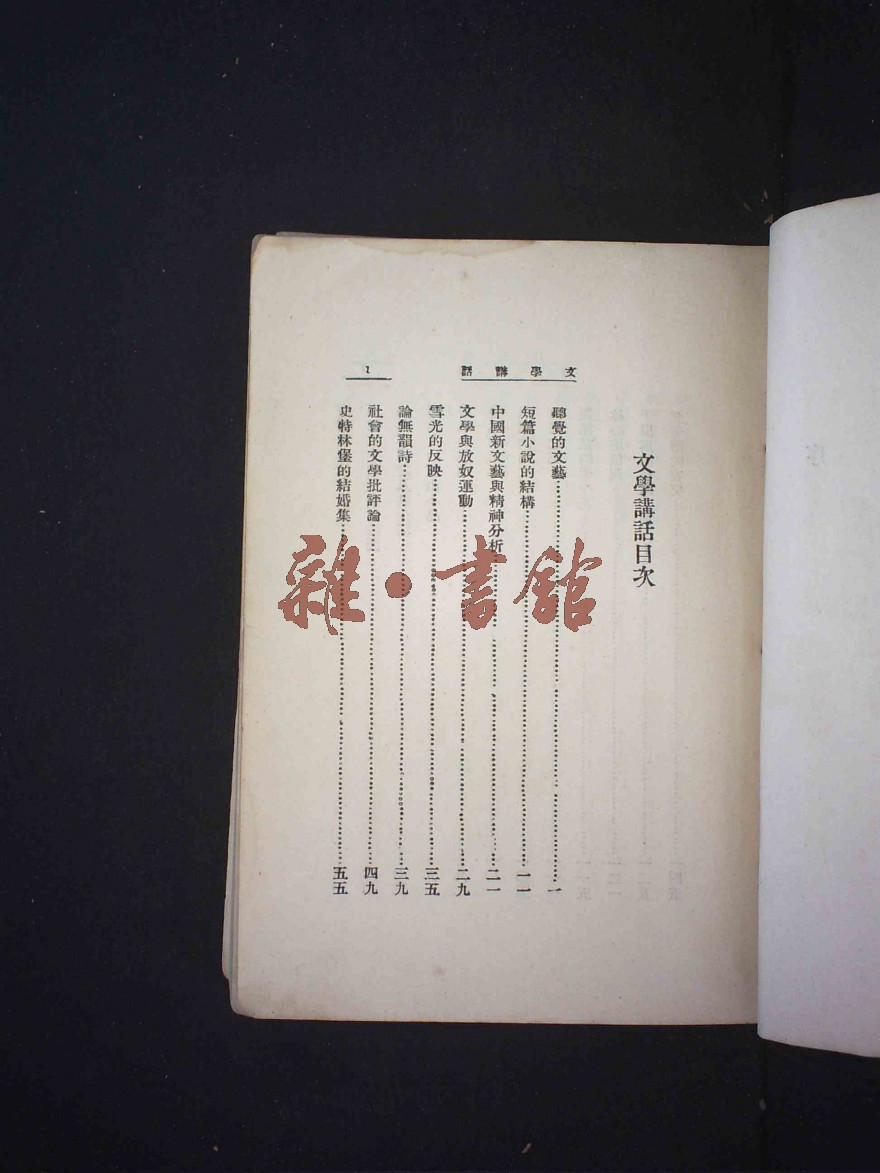 文學講話
1
文學講話目次
聽覺的文藝……一
短篇小說的結構……一一
中國新文藝與精神分析……二一
文學與放奴運動……二九
雪光的反映……三五
論無韻詩……三九
社會的文學批評論……四九
史特林堡的結婚集……五五
雜·書館
序